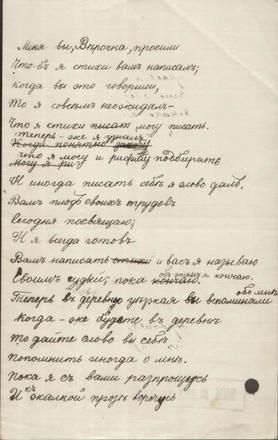 Меня вы, Вѣрочка, просили
Что-бъ я стихи вамъ написалъ;
Когда вы это говорили,
То я совсѣмъ неожидалъ
Что я стихи писат могу писать.
теперь-же я узналъ
Когда понятно
что я могу и рифму подбирать
могу я ри
И иногда писать себѣ я слово далъ.
Вамъ плоды своихъ трудовъ
Сегодня посвящаю;
И я всегда готовъ
Вамъ написать стихи и васъ я называю
объ этомъ я кончаю.
Своимъ судьей; пока кончаю.
обо мнѣ
Теперь въ деревню уѣзжая вы вспоминали
Когда-же будете въ деревнѣ
То дайте слово вы себѣ
Попомнить иногда о мнѣ.
Пока я съ вами распрощусь
къ
И жалкой прозѣ ворочусь